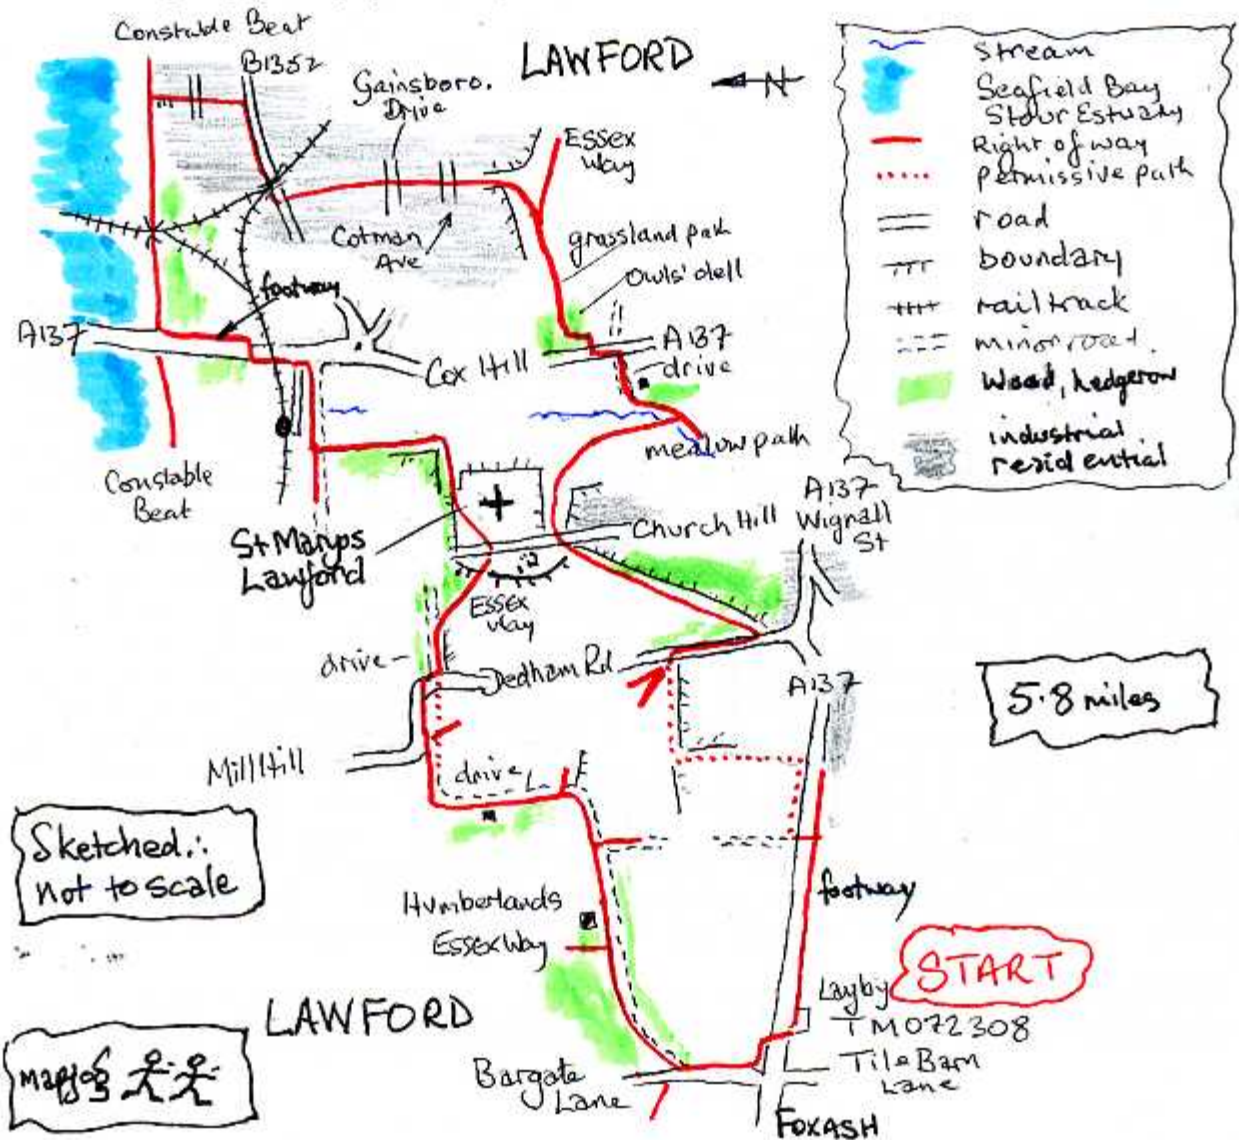 Constable Beat
B1352
Gainsboro.
Drive
LAWFORD
N
Essex
Way
Cotman
Ave
grassland path
Owls' dell
footway
A137
Cox Hill
A137
drive
meadow path
Constable
Beat
St Marys
Lawford
Church Hill
A137
Wignall
St
Essex
Way
drive
Dedham Rd
A137
Mill Hill
drive
5.8 miles
Sketched ∴
not to scale
Humberlands
Essex Way
footway
START
Layby
TM072308
LAWFORD
Tile Barn
Lane
Bargate
Lane
FOXASH
mapjog
stream
Seafield Bay
Stour Estuary
Right of way
permissive path
road
boundary
rail track
minor road.
Wood, hedgerow
industrial
residential